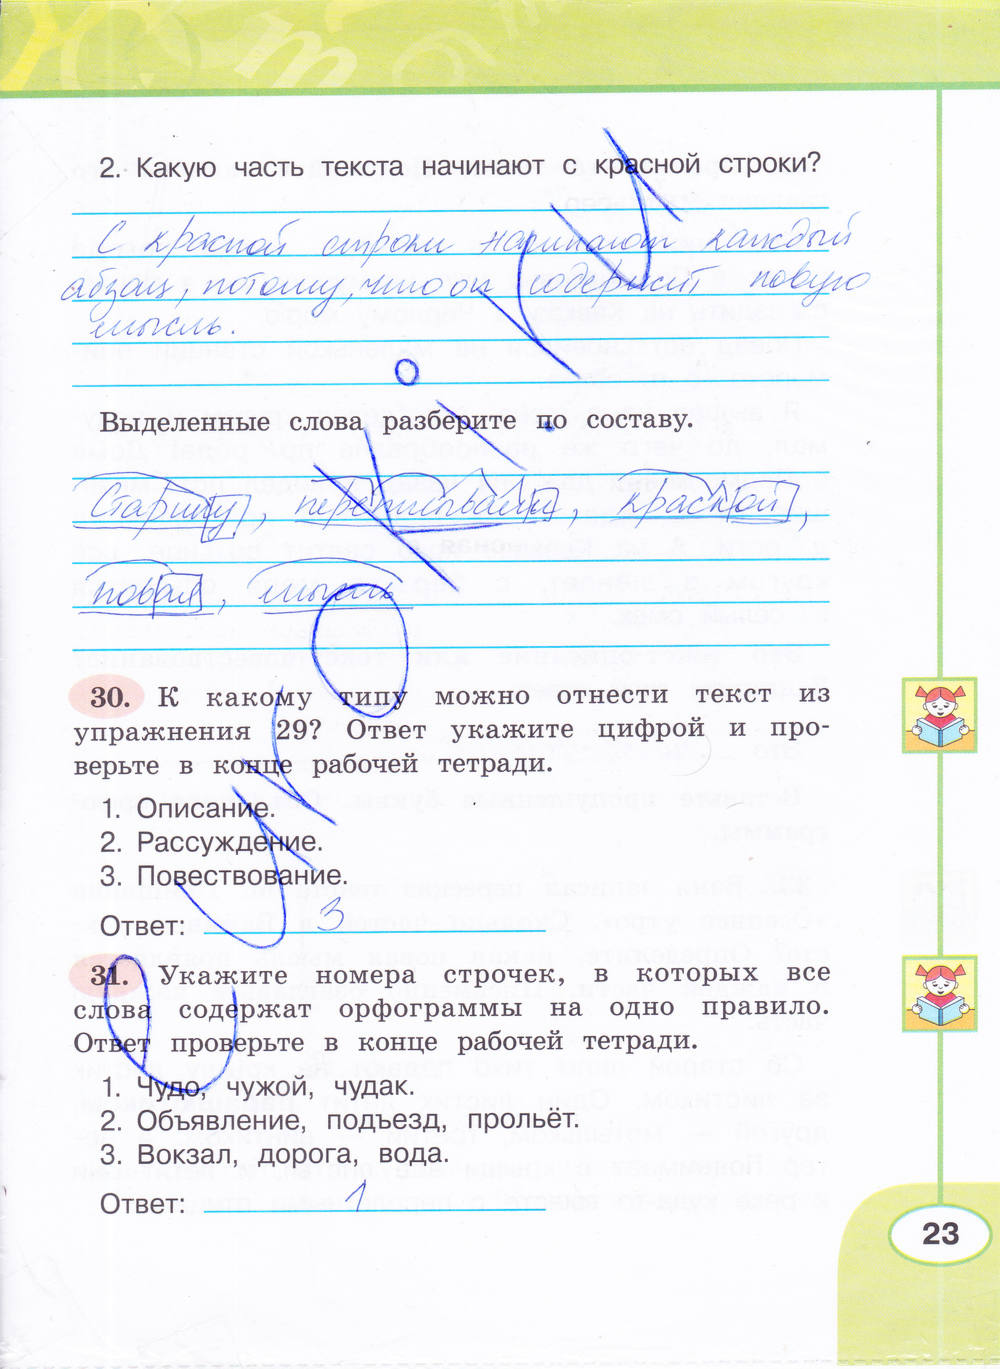 2. Какую часть текста начинают с красной строки?
С красной строки начинают каждый
абзац, потому, что он содержит новую
мысль.
Выделенные слова разберите по составу.
Старину, переписывали, красной,
новая, мысль
30. К какому типу можно отнести текст из
упражнения 29? Ответ укажите цифрой и про-
верьте в конце рабочей тетради.
1. Описание.
2. Рассуждение.
3. Повествование.
Ответ: 3
31. Укажите номера строчек, в которых все
слова содержат орфограммы на одно правило.
Ответ проверьте в конце рабочей тетради.
1. Чудо, чужой, чудак.
2. Объявление, подъезд, прольёт.
3. Вокзал, дорога, вода.
Ответ: 1
23